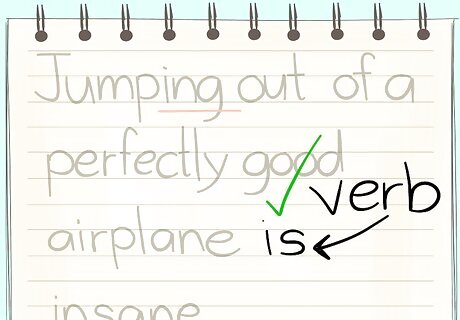 Jumping out of a
perfectly good
verb
airplane is
insane